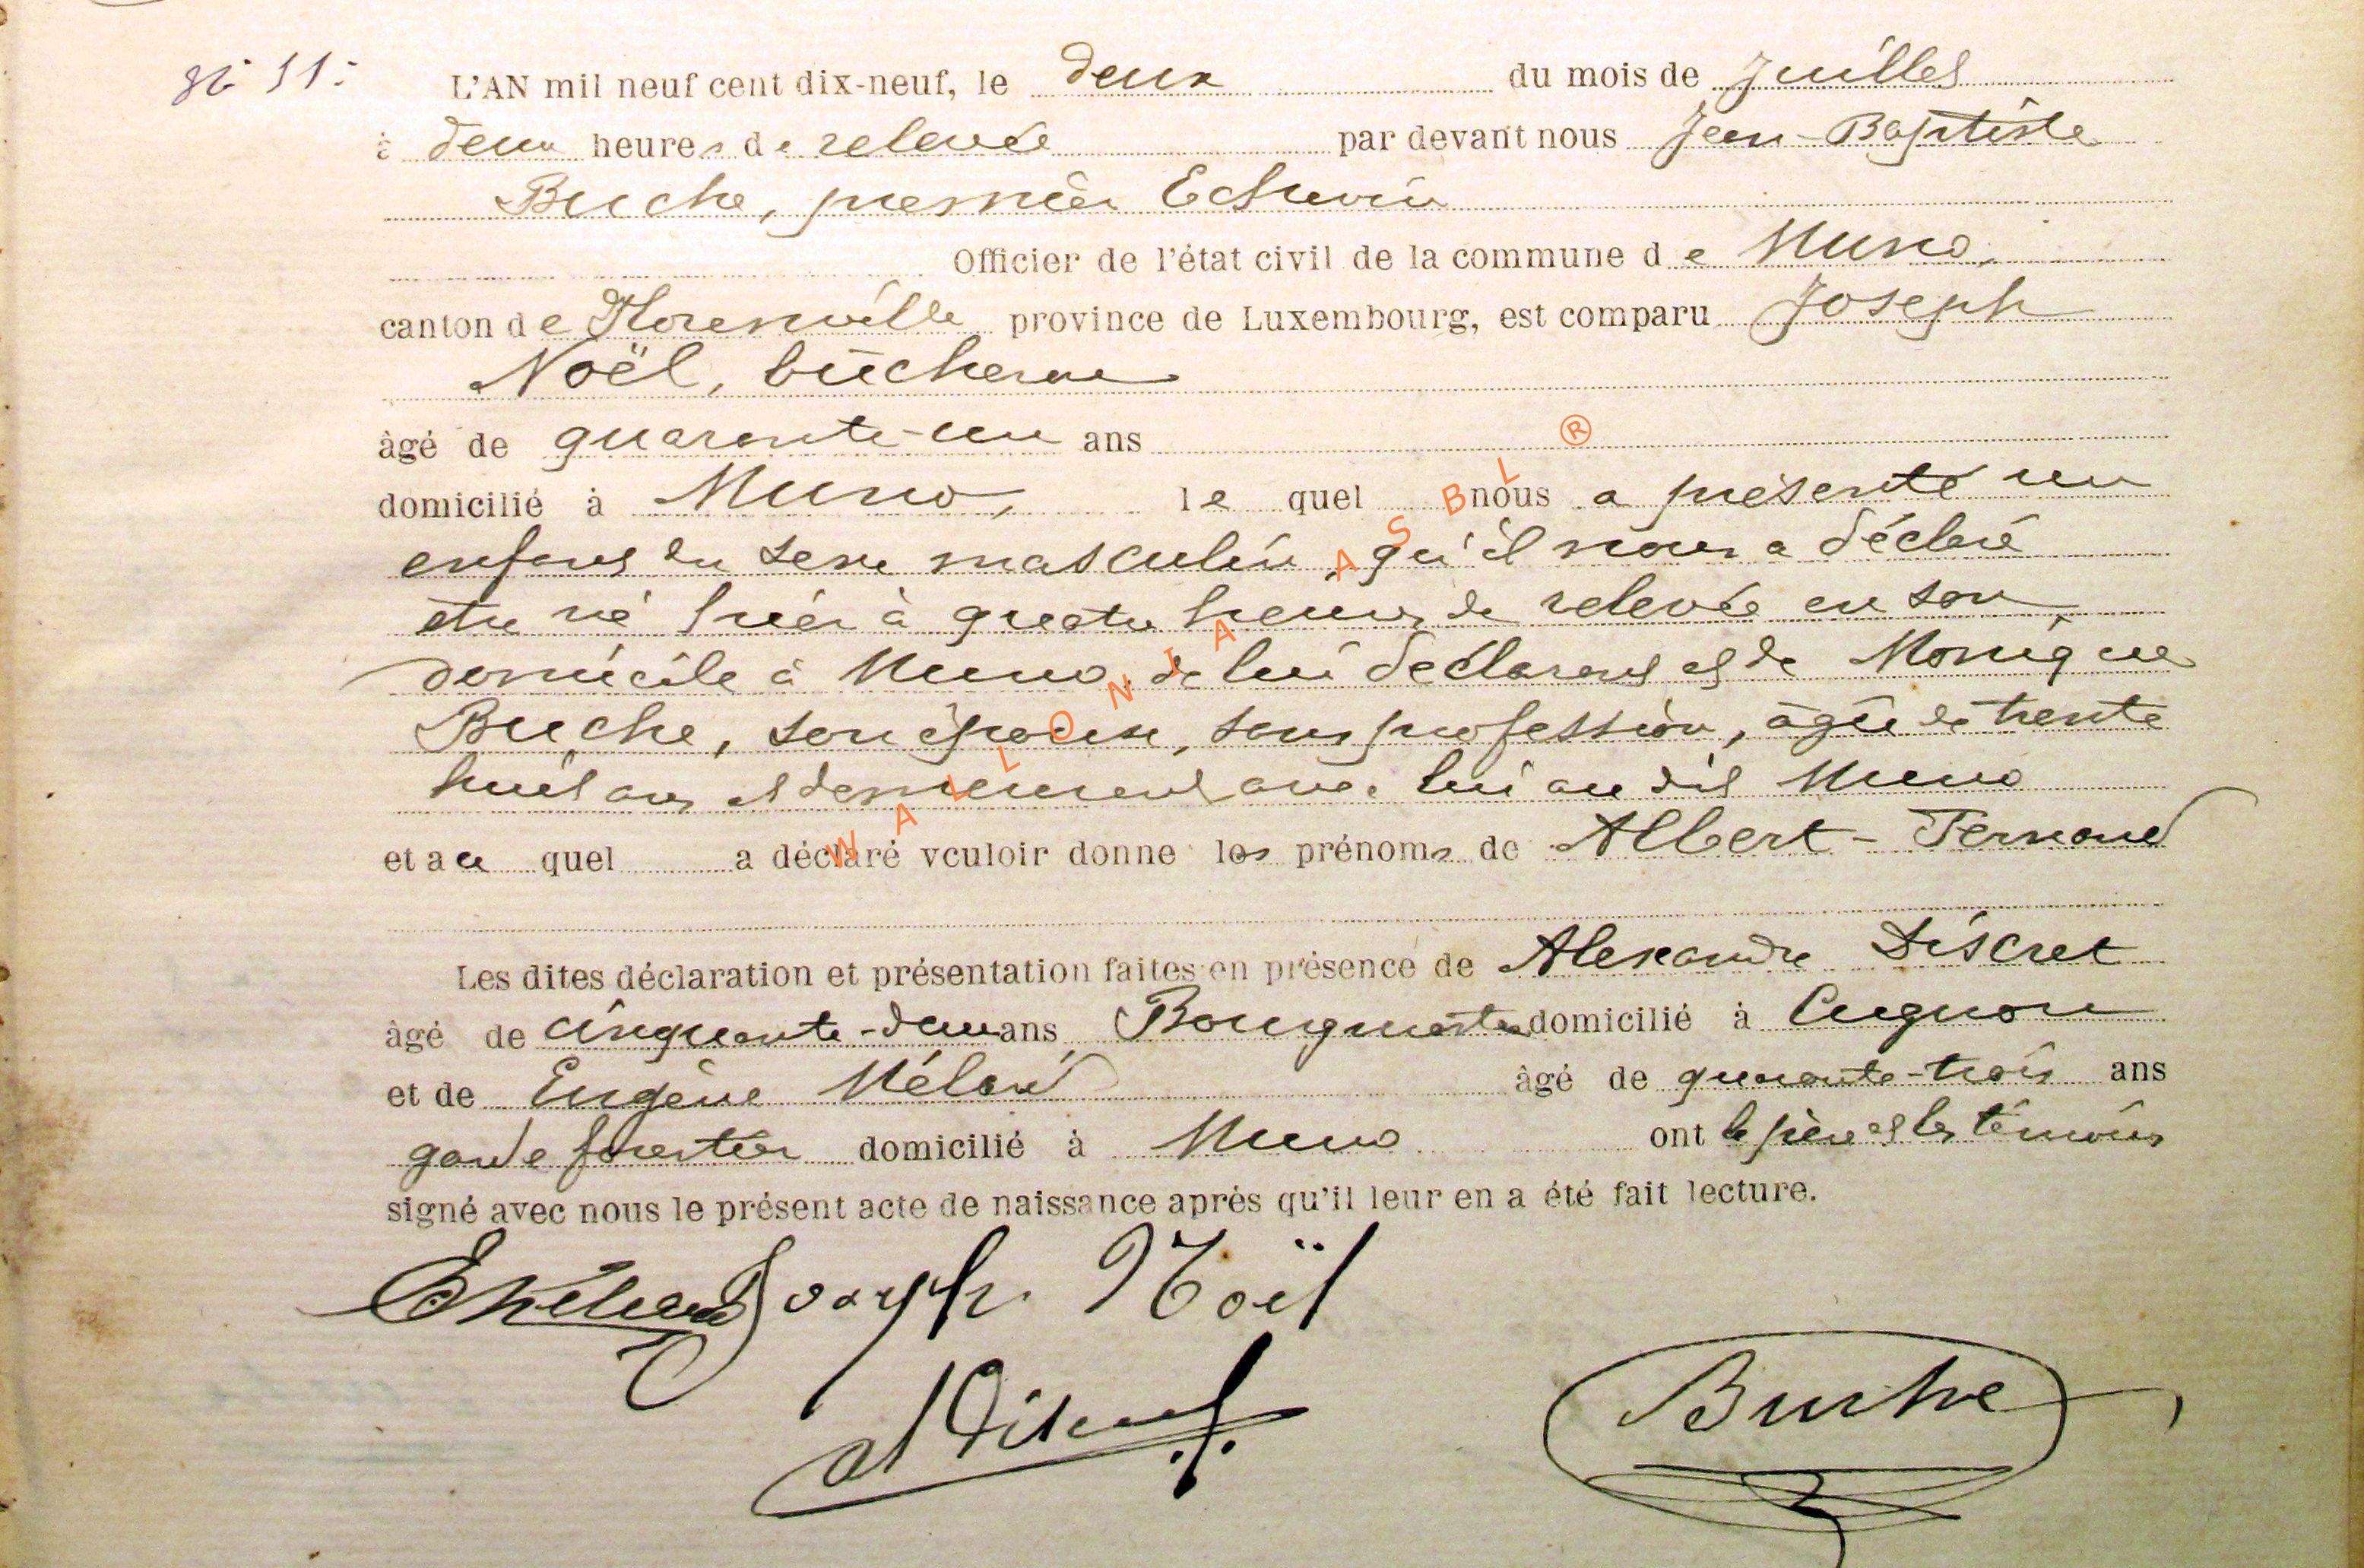 N° 11.
L'AN mil neuf cent dix-neuf, le deux du mois de Juillet
à deux heures de relevée par devant nous Jean-Baptiste
Buche, premier Echevin
Officier de l'état civil de la commune de Muno,
canton de Florenville province de Luxembourg, est comparu Joseph
Noël, bûcheron
âgé de quarante-un ans
domicilié à Muno, le quel nous a présenté un
enfant du sexe masculin, qu'il nous a déclaré
être né hier à quatre heures de relevée en son
domicile à Muno, de lui déclarant et de Monique
Buche, son épouse, sans profession, âgée de trente
huit ans et demeurant avec lui au dit Muno
et au quel a déclaré vouloir donne les prénoms de Albert-Fernand
Les dites déclaration et présentation faites en présence de Alexandre Discret
âgé de cinquante-deux ans Bourgmestre domicilié à Cugnon
et de Eugène Mélard âgé de quarante-trois ans
garde forestier domicilié à Muno ont le père et les témoins
signé avec nous le présent acte de naissance après qu'il leur en a été fait lecture.
EMélard Joseph Noël
ADiscret
Buche
WALLONIA ASBL ®